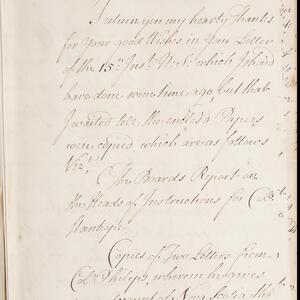 I return you my hearty Thanks
for Your good Wishes in Your Letter
of the 15.th Inst. N.S. which I should
have done some time ago, but that
I waited till the enclos'd Papers
were copied which are as follows
Vizt.
The Boards Report on
the Heads of Instructions for Coll.
Stanhope.
Copies of Two Letters from
Coll. Philips, wherein he gives
Account of Nova Scotia